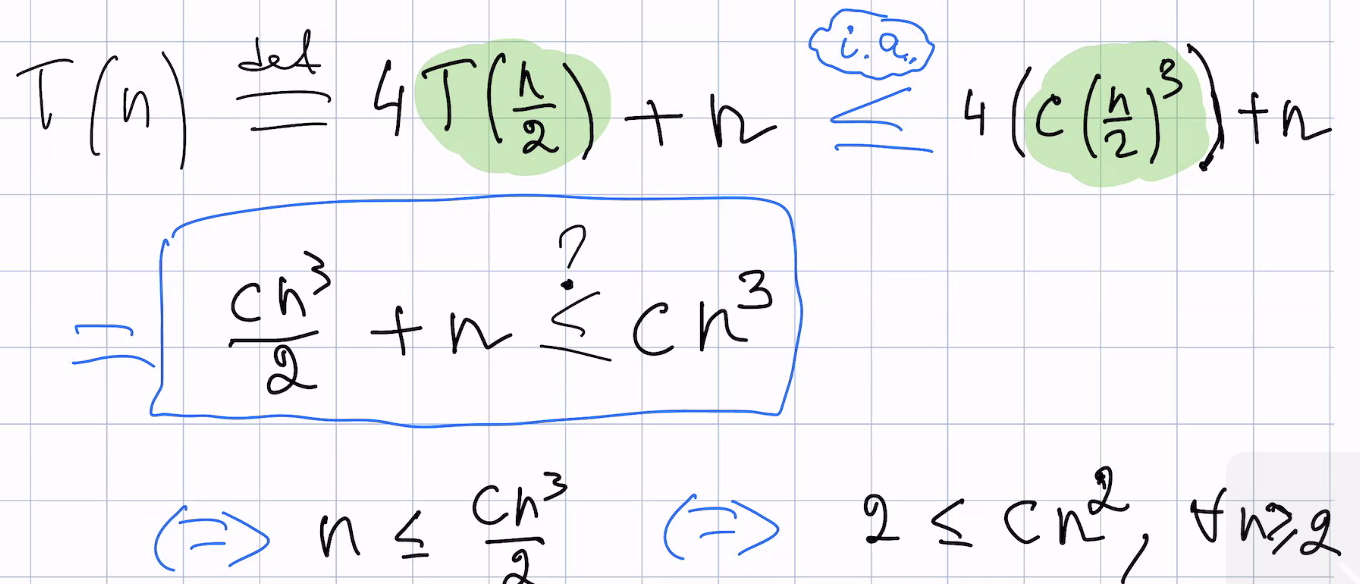 T(n) def= 4T(n/2) + n i.a.≤ 4(c(n/2)³) + n
= cn³/2 + n ?≤ cn³
(=> n ≤ cn³/2 (=> 2 ≤ cn², ∀n≥2